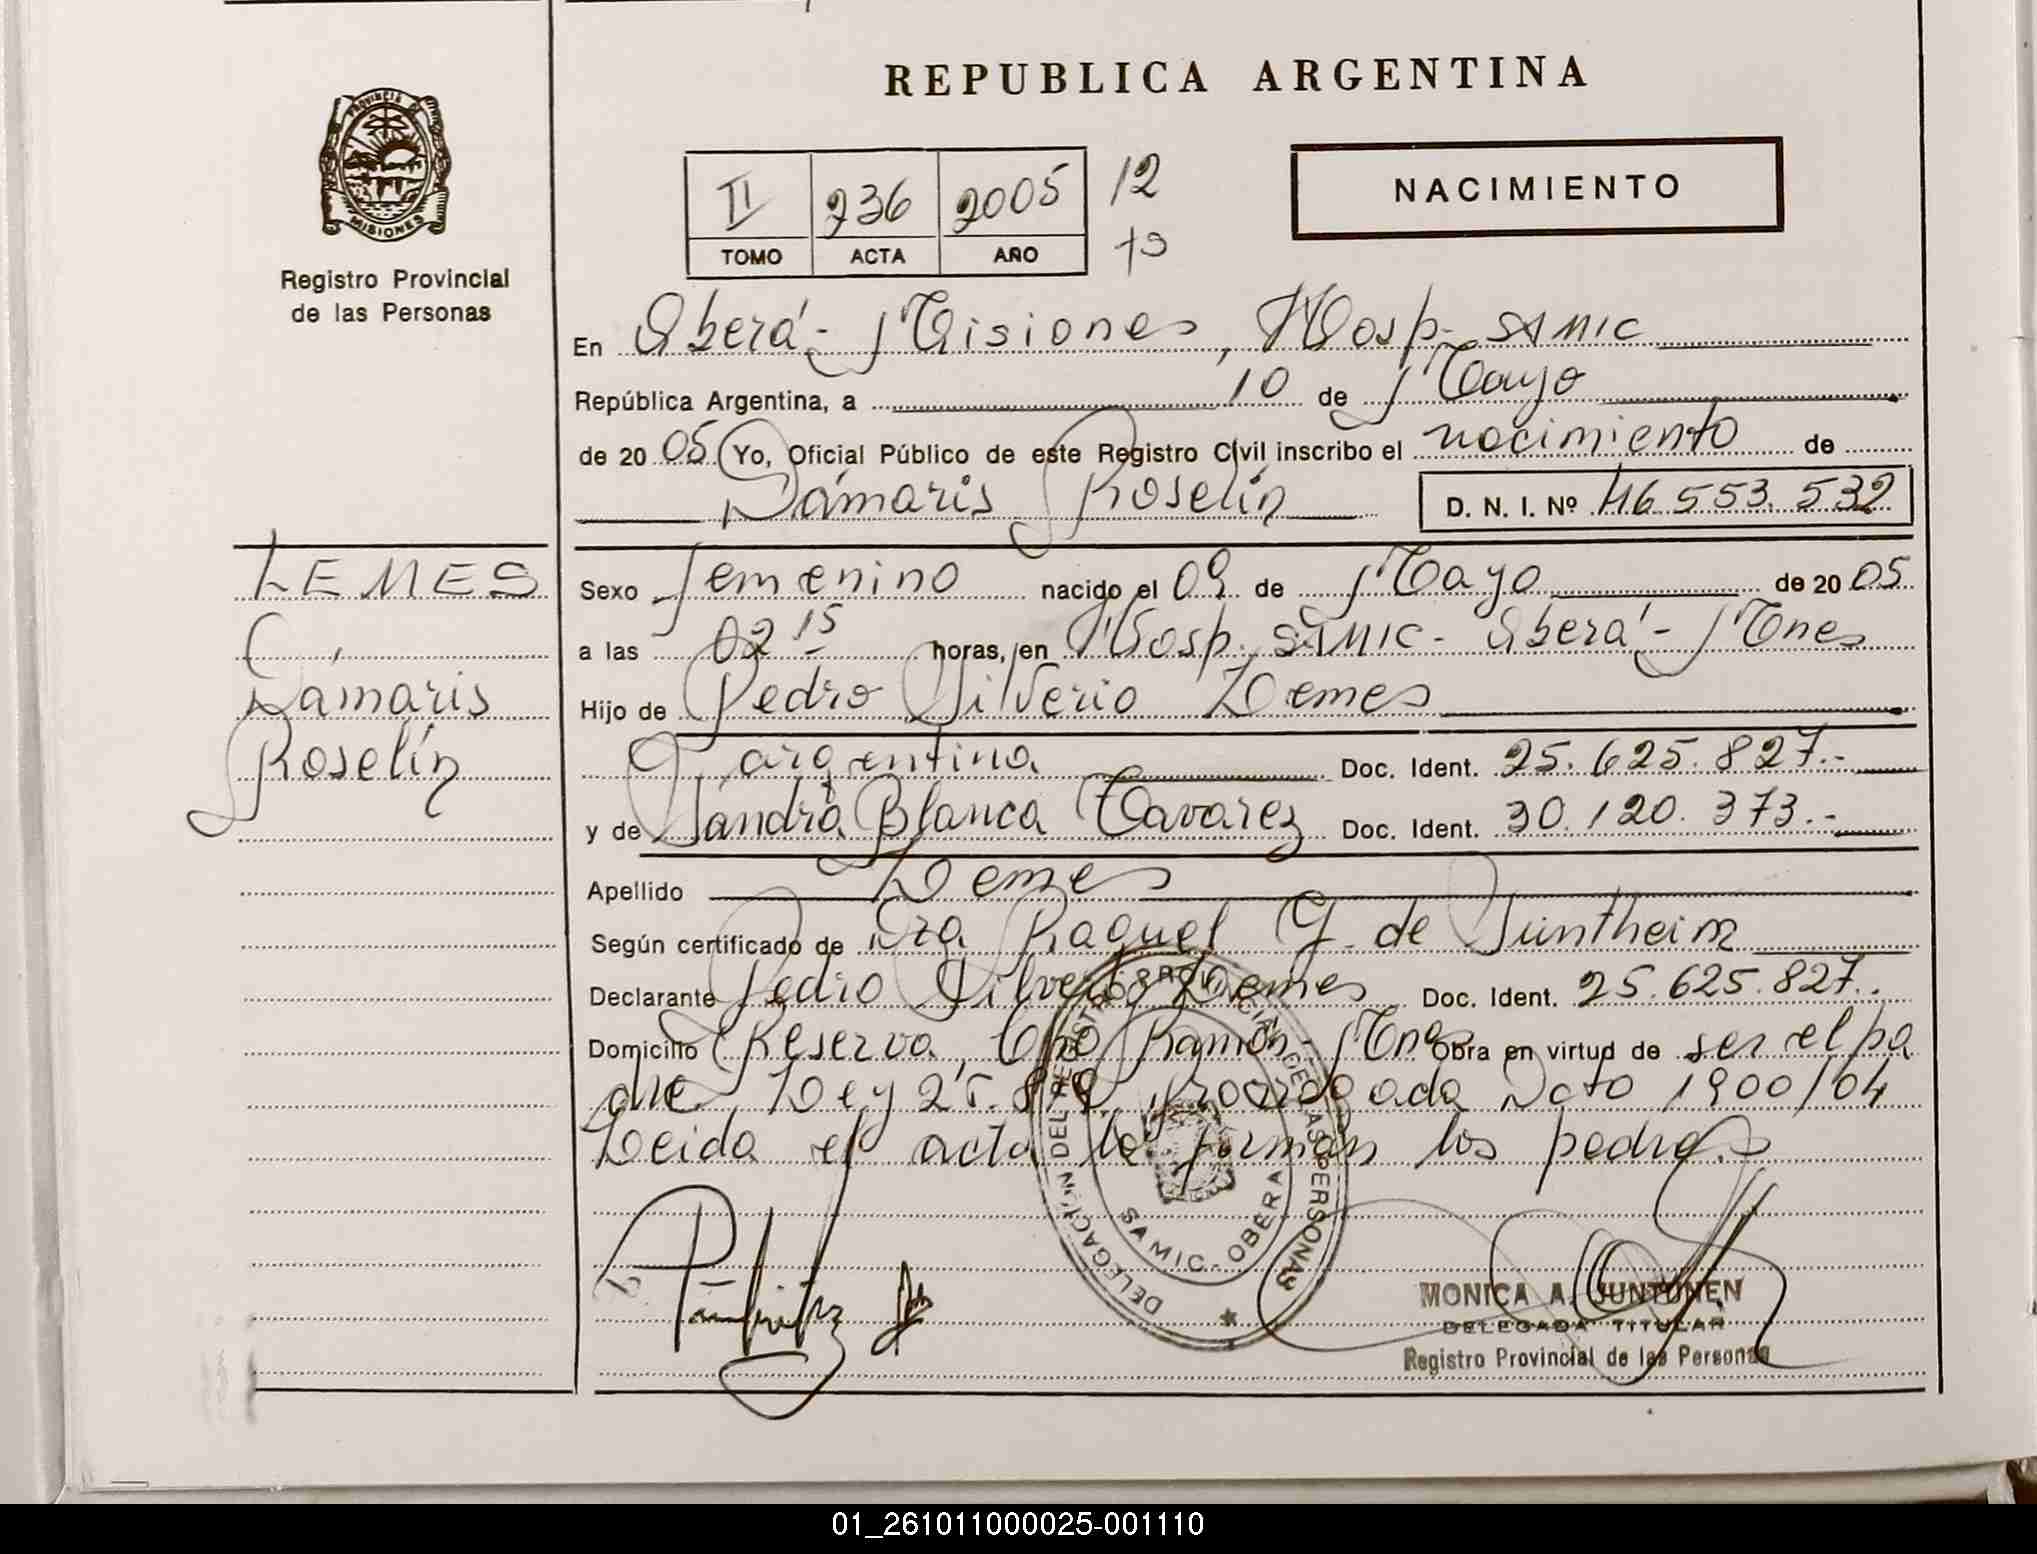 REPUBLICA ARGENTINA
PROVINCIA DE
MISIONES
Registro Provincial
de las Personas
II 236 2005 12
TOMO ACTA AÑO
NACIMIENTO
En Oberá - Misiones, Hosp. SAMIC
República Argentina, a 10 de Mayo
de 2005 Yo, Oficial Público de este Registro Civil inscribo el nacimiento de
Dámaris Roselín D. N. I. Nº 46.553.532
LEMES
Dámaris
Roselín
Sexo femenino nacido el 09 de Mayo de 2005
a las 02 15 horas, en Hosp. SAMIC - Oberá - Mnes
Hijo de Pedro Silverio Lemes
argentina Doc. Ident. 25.625.827.-
y de Sandra Blanca Tavarez Doc. Ident. 30.120.373.-
Apellido Lemes
Según certificado de Dra Raquel G. de Suntheim
Declarante Pedro Silverio Lemes Doc. Ident. 25.625.827.
Domicilio Reserva, Cpo Ramón - Mnes Obra en virtud de ser el pa
dre. Ley 25.819, prorrogada Dcto 1900/04
Leida el acta la firman los padres
DELEGACIÓN DEL REGISTRO PROVINCIAL DE LAS PERSONAS
SAMIC - OBERA
MONICA A. JUNTUNEN
DELEGADA TITULAR
Registro Provincial de las Personas
01_261011000025-001110